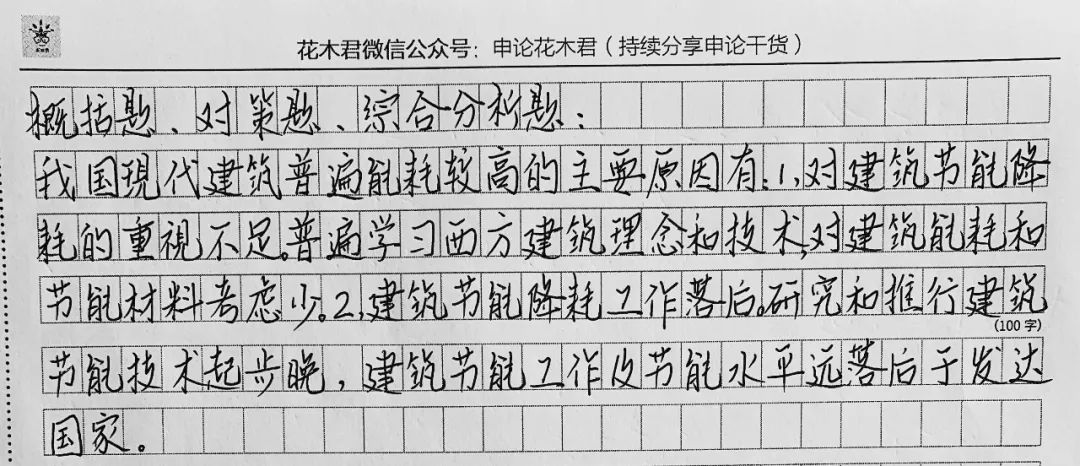 花木君微信公众号：申论花木君（持续分享申论干货）
概括题、对策题、综合分析题：
我国现代建筑普遍能耗较高的主要原因有：1,对建筑节能降
耗的重视不足。普遍学习西方建筑理念和技术,对建筑能耗和
节能材料考虑少。2,建筑节能降耗工作落后。研究和推行建筑
(100字)
节能技术起步晚，建筑节能工作及节能水平远落后于发达
国家。